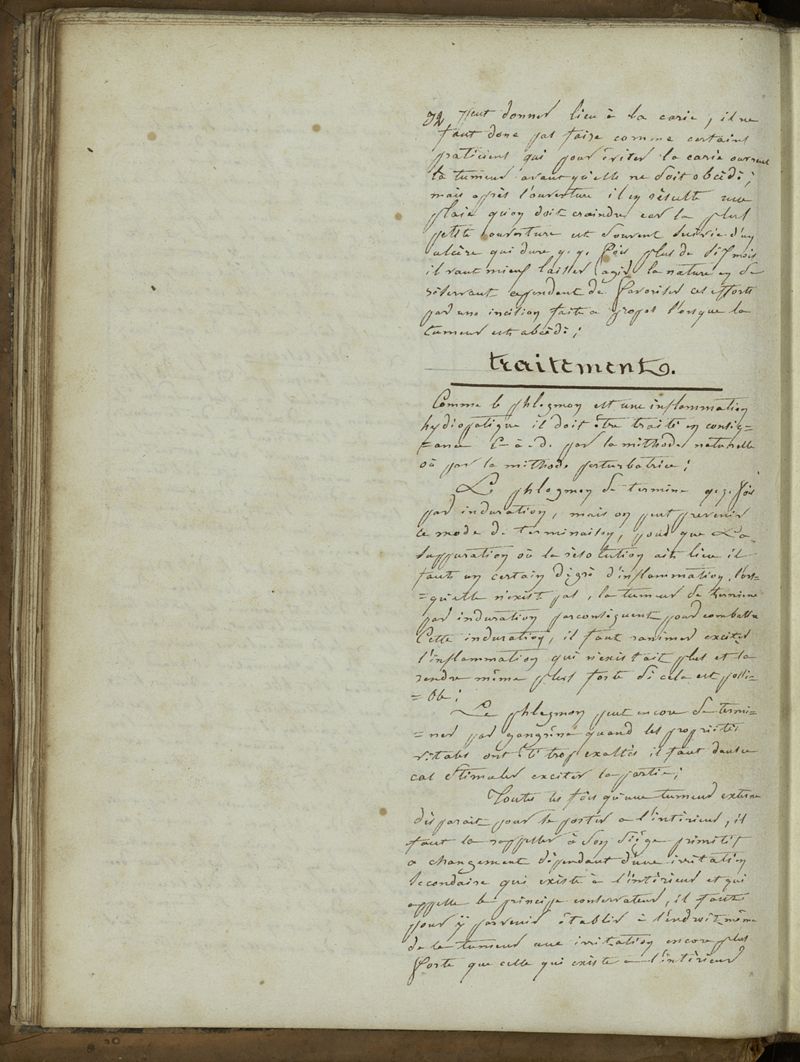 32 peut donner lieu à la carie, il ne
faut donc pas faire comme certains
praticiens qui pour éviter la carie ouvrent
la tumeur avant qu'elle ne soit abcédé;
mais après l'ouverture il en résulte une
plaie qu'on doit craindre car la plus
petite ouverture est souvent suivie d'un
ulcère qui dure q.q. fois plus de six mois
il vaut mieux laisser agir la nature en se
réservant cependant de favoriser ces efforts
par une incision faite a propos lorsque la
tumeur est abcédé;
traitement.
Comme le phlegmon est une inflammation
hydiopatique il doit être traité en conséq=
=ance C-à-d. par la méthode naturelle
où par la méthode perturbatrice;
Le phlegmon se termine q.q. fois
par induration, mais on peut prévenir
ce mode de terminaison, pour que la
suppuration où la résolution ait lieu il
faut un certain dégré d'inflammation, lors=
=qu'elle n'exist pas, la tumeur se termine
par induration parconséquent pour combattre
cette induration, il faut ranimer exciter
l'inflammation qui n'existait plus et la
rendre même plus forte si cela est possi=
=ble;
Le phlegmon peut encore se termi=
=ner par gangrène quand les propriétés
vitales ont été trop exaltés il faut dans ce
cas stimuler exciter la partie;
Toutes les fois qu'une tumeur externe
disparait pour se porter a l'intérieur, il
faut la rappeller à son siège primitif
a changement dépendant d'une irritation
secondaire qui existe à l'intérieur et qui
appelle le principe conservateur, il faut
pour y parvenir établir à l'endroit même
de la tumeur une irritation encore plus
forte que celle qui existe a l'intérieur